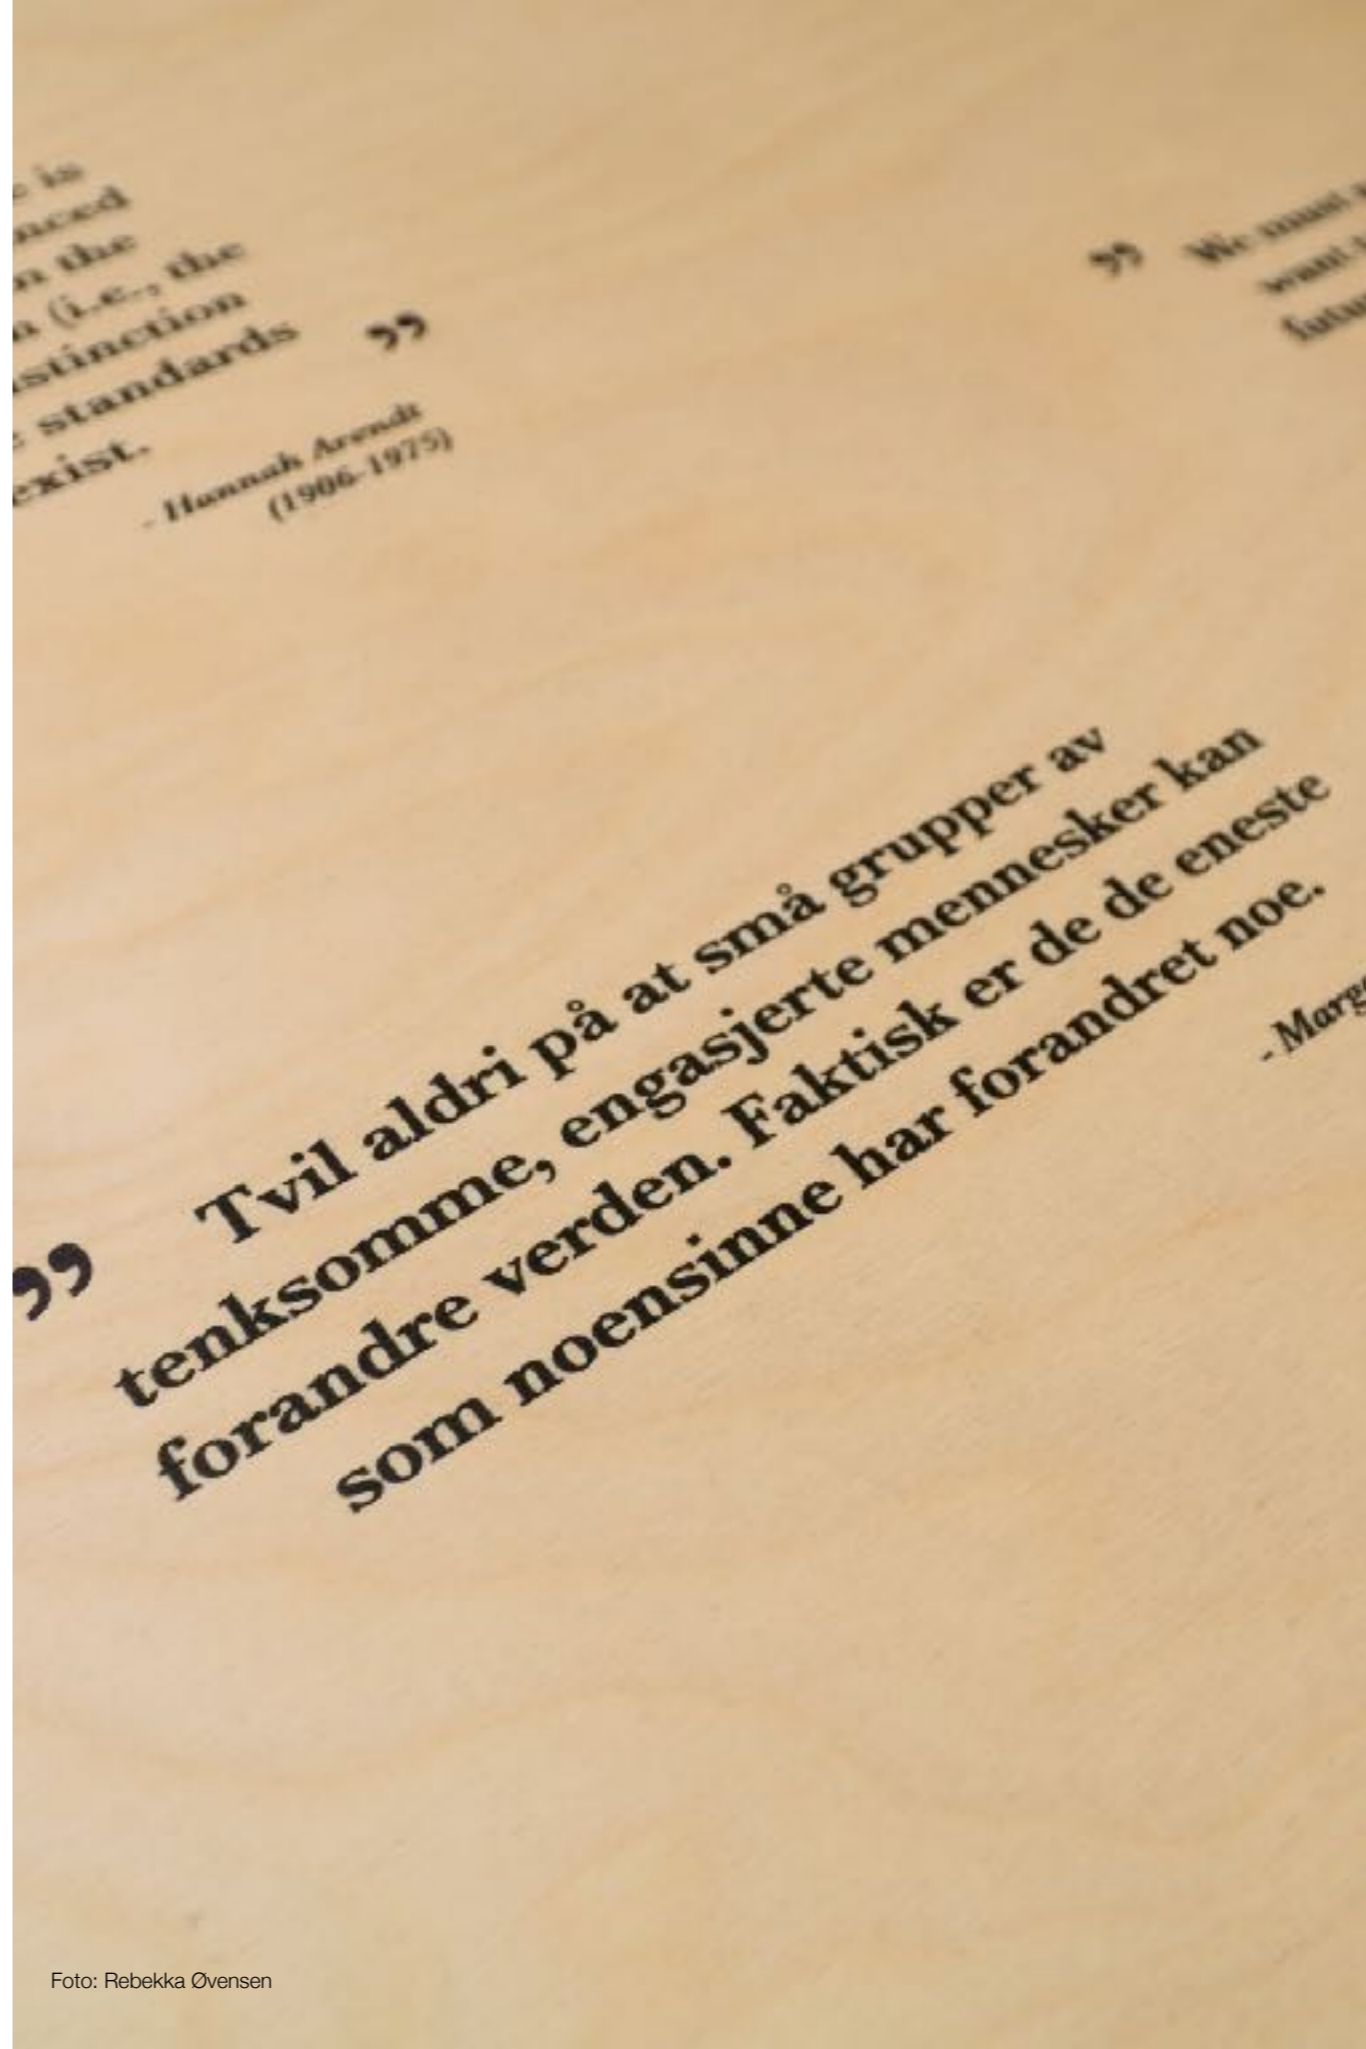 is
the
(i.e., the
standards
exist.
”
- Hannah Arendt
(1906-1975)
” We must
want
” Tvil aldri på at små grupper av
tenksomme, engasjerte mennesker kan
forandre verden. Faktisk er de de eneste
som noensinne har forandret noe.
Foto: Rebekka Øvensen